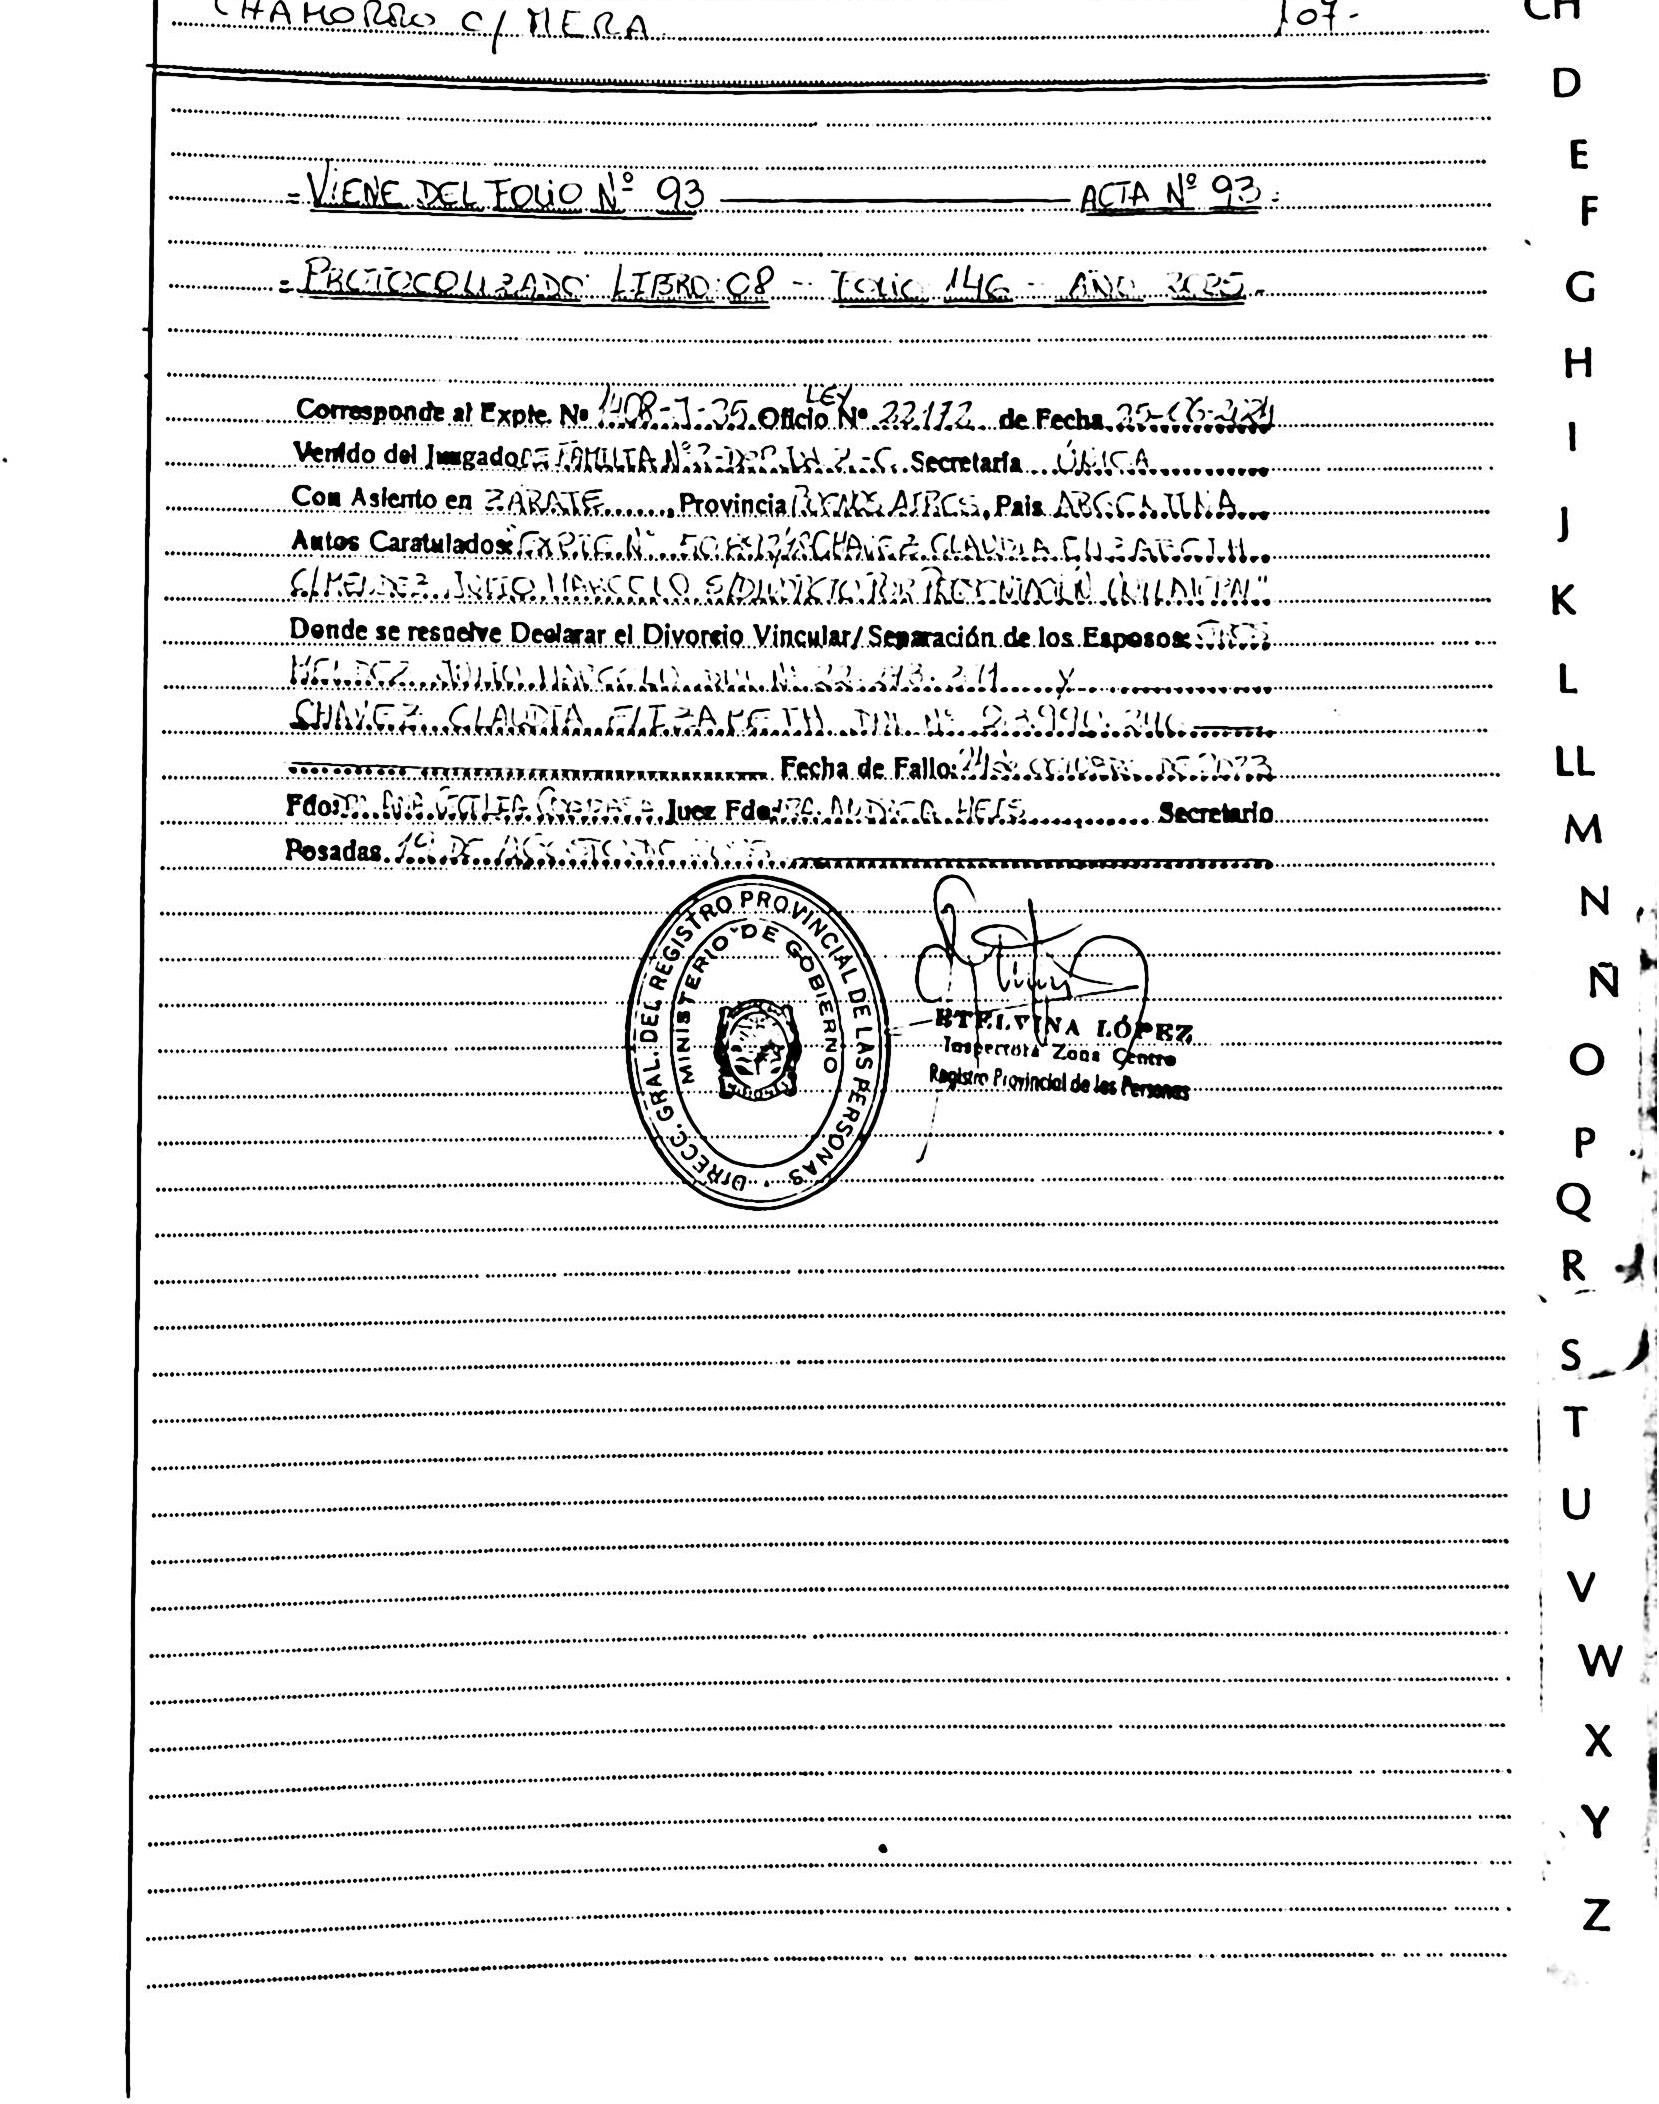 CHAMORRO C/ MERA 107-
= VIENE DEL FOLIO Nº 93 ——— ACTA Nº 93 =
= PROTOCOLIZADO LIBRO: 08 - FOLIO 146 - AÑO 2025.-
LEY
Corresponde al Expte. Nº 1408-J-25 Oficio Nº 22172 de Fecha
Venido del Juzgado DE FAMILIA Nº Secretaría ÚNICA
Con Asiento en ZÁRATE, Provincia BUENOS AIRES, Pais ARGENTINA
Autos Caratulados: "EXPTE Nº CHAVEZ CLAUDIA ELIZABETH
C/ MELDEZ JULIO MARCELO S/ DIVORCIO POR PRESENTACIÓN UNILATERAL"
Donde se resuelve Declarar el Divorcio Vincular/Separación de los Esposos:
MELDEZ JULIO MARCELO DNI Nº y
CHAVEZ CLAUDIA ELIZABETH DNI Nº
Fecha de Fallo: DE OCTUBRE DE 2023
Fdo: DRA. ANA CECILIA Juez Fdo: DRA. Secretario
Posadas 19 DE AGOSTO DE 2025
DIRECC. GRAL. DEL REGISTRO PROVINCIAL DE LAS PERSONAS
MINISTERIO DE GOBIERNO
ETELVINA LÓPEZ
Inspectora Zona Centro
Registro Provincial de las Personas
CH
D
E
F
G
H
I
J
K
L
LL
M
N
Ñ
O
P
Q
R
S
T
U
V
W
X
Y
Z